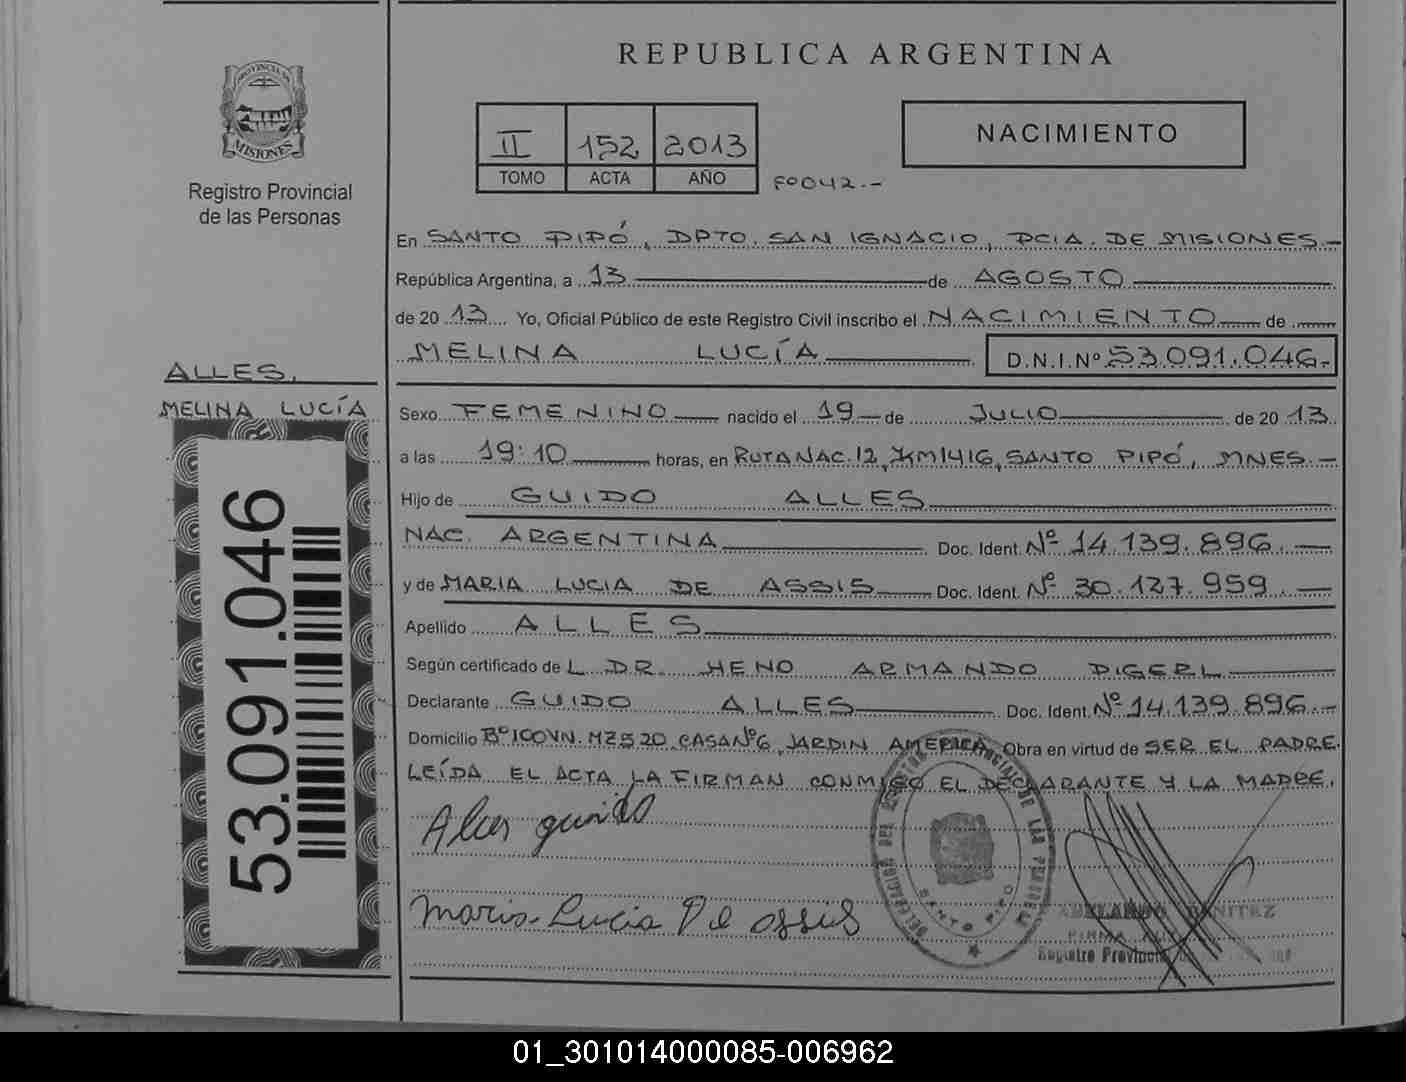 REPUBLICA ARGENTINA
PROVINCIA DE
MISIONES
Registro Provincial
de las Personas
II 152 2013
TOMO ACTA AÑO
Fº042.-
NACIMIENTO
En SANTO PIPÓ, DPTO. SAN IGNACIO, PCIA. DE MISIONES.-
República Argentina, a 13 de AGOSTO
de 2013 Yo, Oficial Público de este Registro Civil inscribo el NACIMIENTO de
MELINA LUCÍA D.N.I.Nº 53.091.046.-
ALLES,
MELINA LUCÍA
53.091.046
Sexo FEMENINO nacido el 19 de JULIO de 2013
a las 19:10 horas, en RUTA NAC. 12, KM 1416, SANTO PIPÓ, MNES.-
Hijo de GUIDO ALLES
NAC. ARGENTINA Doc. Ident. Nº 14.139.896.
y de MARIA LUCIA DE ASSIS Doc. Ident. Nº 30.127.959
Apellido ALLES
Según certificado de L DR. HENO ARMANDO DIGERL
Declarante GUIDO ALLES Doc. Ident. Nº 14.139.896.-
Domicilio Bº 100VN. MZ520. CASA Nº6, JARDIN AMERICA, Obra en virtud de SER EL PADRE.
LEÍDA EL ACTA LA FIRMAN CONMIGO EL DECLARANTE Y LA MADRE.
Alles guido
Maria Lucia De assis
DELEGACION DEL REGISTRO PROVINCIAL DE LAS PERSONAS
SANTO PIPO
ABELARDO BENITEZ
FIRMA
Registro Provincial
01_301014000085-006962